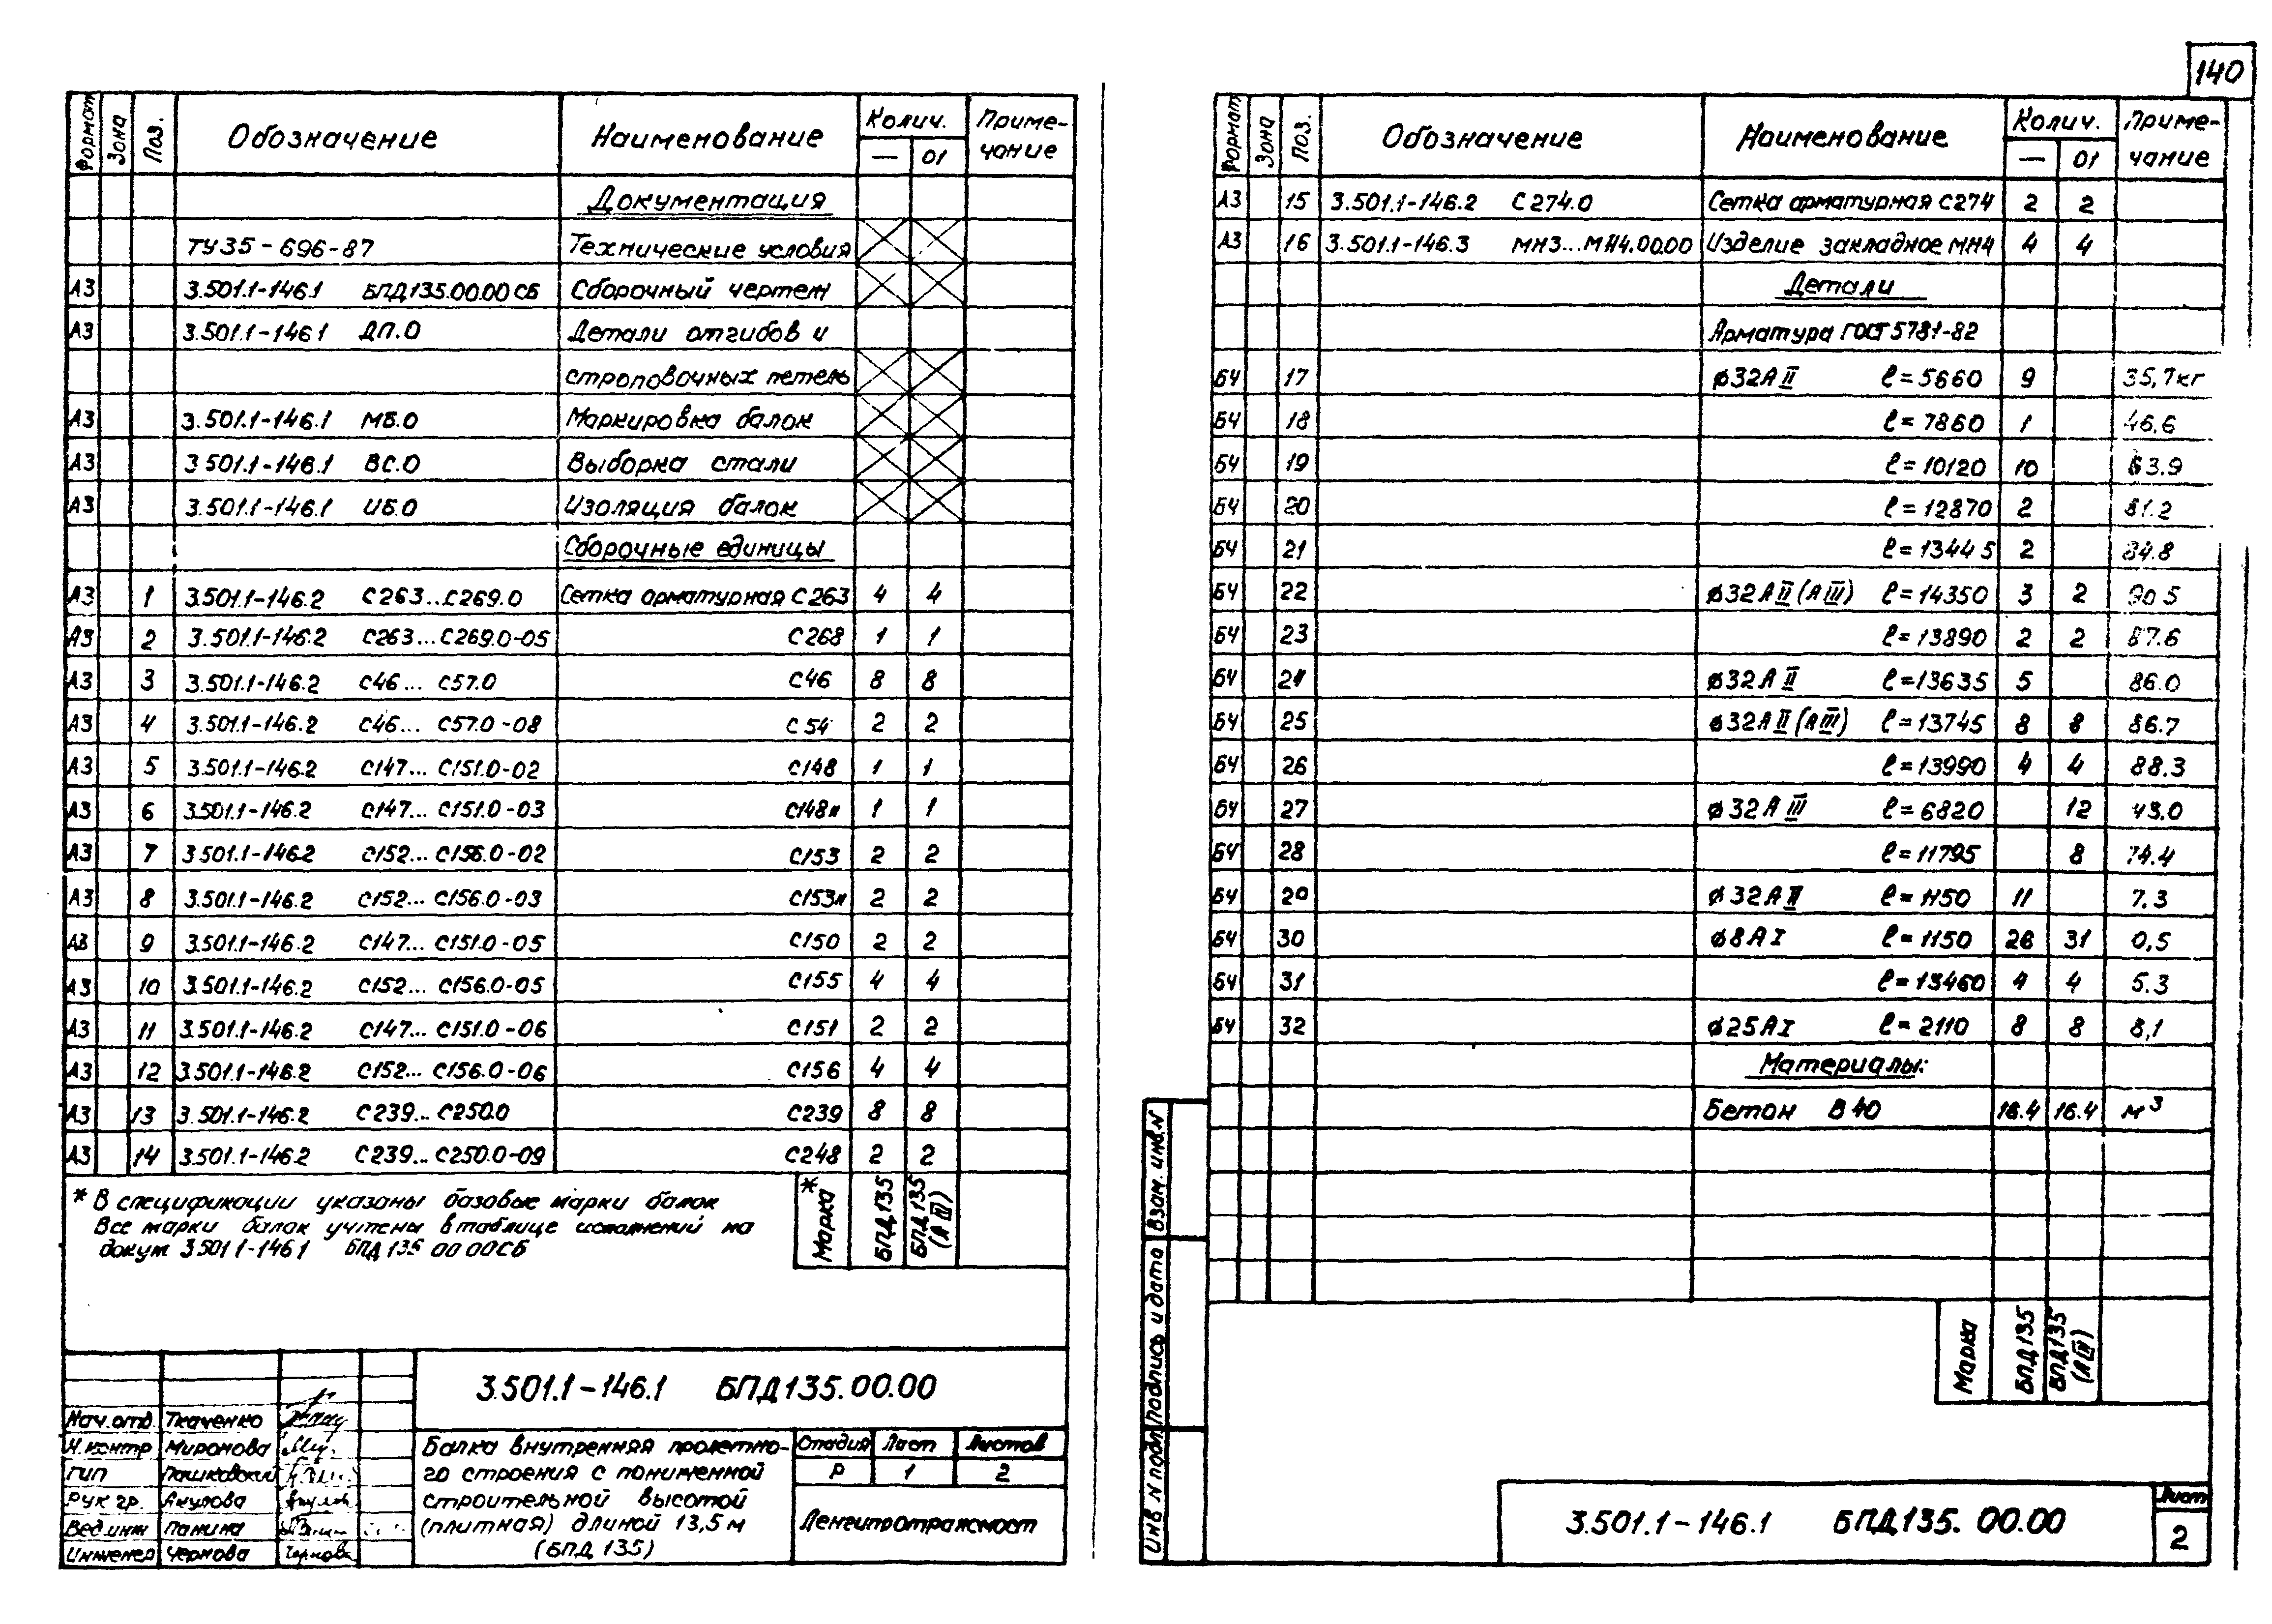 140
Формат Зона Поз. Обозначение Наименование Колич. Приме-
— 01 чание
Документация
ТУ35-696-87 Технические условия
А3 3.501.1-146.1 БПД135.00.00СБ Сборочный чертеж
А3 3.501.1-146 1 ДП.0 Детали отгибов и
строповочных петель
А3 3.501.1-146.1 МБ.0 Маркировка балок
А3 3 501.1-146.1 ВС.0 Выборка стали
А3 3.501.1-146.1 ИБ.0 Изоляция балок
Сборочные единицы
А3 1 3.501.1-146.2 С263...С269.0 Сетка арматурная С263 4 4
А3 2 3.501.1-146.2 С263...С269.0-05 С268 1 1
А3 3 3.501.1-146.2 С46... С57.0 С46 8 8
А3 4 3.501.1-146.2 С46... С57.0-08 С54 2 2
А3 5 3.501.1-146.2 С147... С151.0-02 С148 1 1
А3 6 3.501.1-146.2 С147... С151.0-03 С148н 1 1
А3 7 3.501.1-146.2 С152... С156.0-02 С153 2 2
А3 8 3.501.1-146.2 С152... С156.0-03 С153н 2 2
А3 9 3.501.1-146.2 С147... С151.0-05 С150 2 2
А3 10 3.501.1-146.2 С152... С156.0-05 С155 4 4
А3 11 3.501.1-146.2 С147... С151.0-06 С151 2 2
А3 12 3.501.1-146.2 С152... С156.0-06 С156 4 4
А3 13 3.501.1-146.2 С239... С250.0 С239 8 8
А3 14 3.501.1-146.2 С239... С250.0-09 С248 2 2
* В спецификации указаны базовые марки балок
Все марки балок учтены в таблице исполнений на
докум 3.501 1-146 1 БПД 135 00 00СБ
* Марка БПД135 БПД135 (А III)
3.501.1-146.1 БПД135.00.00
Нач.отд. Ткаченко
Н.контр Миронова
ГИП Пашковский
Рук гр. Акулова
Вед.инж Панина
Инженер Чернова
Балка внутренняя пролетно-
го строения с пониженной
строительной высотой
(плитная) длиной 13,5 м
(БПД 135)
Стадия Лист Листов
Р 1 2
Ленгипротрансмост
Формат Зона Поз. Обозначение Наименование Колич. Приме-
— 01 чание
А3 15 3.501.1-146.2 С274.0 Сетка арматурная С274 2 2
А3 16 3.501.1-146.3 МН3...МН4.00.00 Изделие закладное МН4 4 4
Детали
Арматура ГОСТ 5781-82
БЧ 17 ø32А II ℓ=5660 9 35,7кг
БЧ 18 ℓ=7860 1 46.6
БЧ 19 ℓ=10120 10 63.9
БЧ 20 ℓ=12870 2 81.2
БЧ 21 ℓ=13445 2 84.8
БЧ 22 ø32А II (А III) ℓ=14350 3 2 90 5
БЧ 23 ℓ=13890 2 2 87.6
БЧ 24 ø32А II ℓ=13635 5 86.0
БЧ 25 ø32А II (А III) ℓ=13745 8 8 86.7
БЧ 26 ℓ=13990 4 4 88.3
БЧ 27 ø32А III ℓ=6820 12 43.0
БЧ 28 ℓ=11795 8 74.4
БЧ 29 ø32А II ℓ=1150 11 7.3
БЧ 30 ø8А I ℓ=1150 26 31 0,5
БЧ 31 ℓ=13460 4 4 5.3
БЧ 32 ø25А I ℓ=2110 8 8 8,1
Материалы:
Бетон В40 16.4 16.4 м³
Марка БПД135 БПД135 (А III)
Инв N подл Подпись и дата Взам. инв.N
3.501.1-146.1 БПД135. 00.00
Лист
2